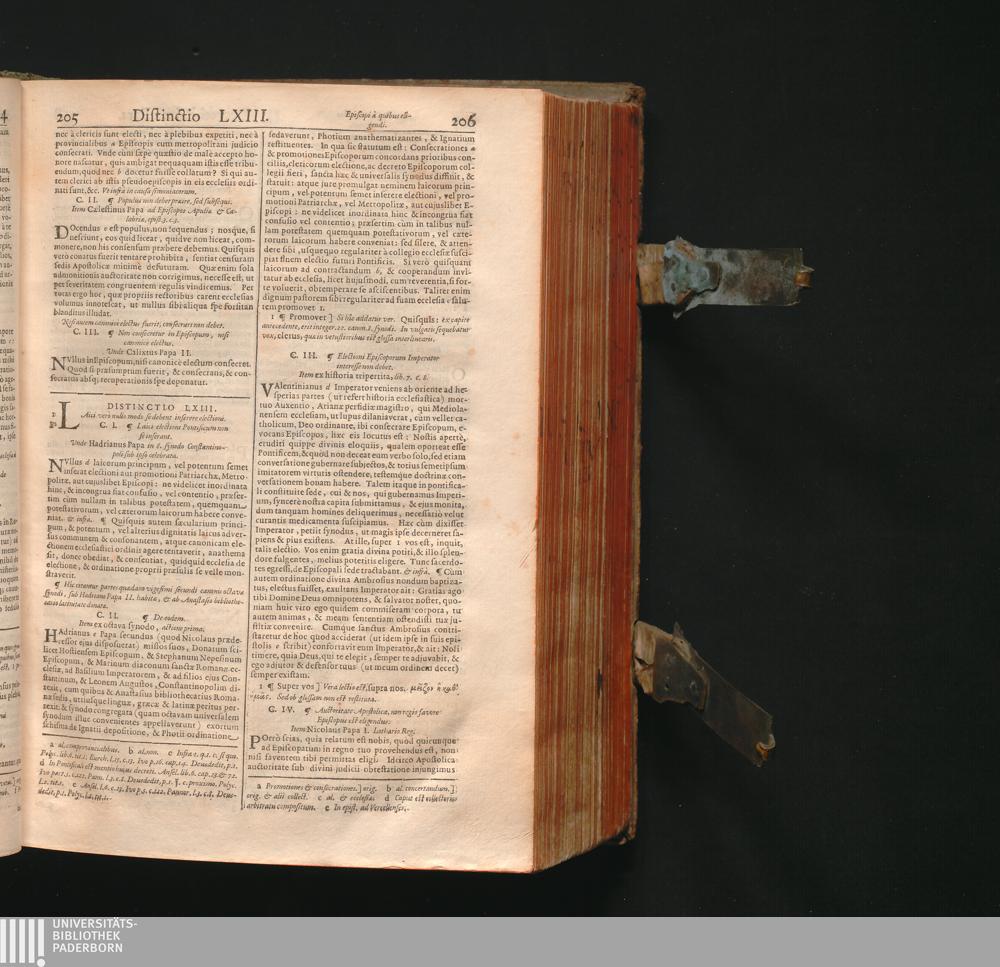 205 Distinctio LXIII. Episcopi à quibus eli-
gendi. 206
nec à clericis sunt electi, nec à plebibus expetiti, nec à
provincialibus a Episcopis cum metropolitani judicio
consecrati. Unde cùm sæpe quæstio de malè accepto ho-
nore nascatur, quis ambigat nequaquam istis esse tribu-
endum, quod nec b docetur fuisse collatum? Si qui au-
tem clerici ab istis pseudoepiscopis in eis ecclesiis ordi-
nati sunt, &c. Vt infra in causa simoniacorum.
C. II. ¶ Populus non debet præire, sed subsequi.
Item Cælestinus Papa ad Episcopos Apuliæ & Ca-
labriæ, epist. 3. c. 3.
DOcendus c est populus, non sequendus; nosque, si
nesciunt, eos quid liceat, quidve non liceat, com-
monere, non his consensum præbere debemus. Quisquis
verò conatus fuerit tentare prohibita, sentiat censuram
sedis Apostolicæ minimè defuturam. Quæ enim sola
admonitionis auctoritate non corrigimus, necesse est, ut
per severitatem congruentem regulis vindicemus. Per
totas ergo hoc, quæ propriis rectoribus carent ecclesias
volumus innotescat, ut nullus sibi aliqua spe forsitan
blanditus illudat.
Nisi autem canonicè electus fuerit, consecrari non debet.
C. III. ¶ Non consecretur in Episcopum, nisi
canonicè electus.
Unde Calixtus Papa II.
NUllus in Episcopum, nisi canonicè electum consecret.
Quod si præsumptum fuerit, & consecrans, & con-
secratus absq; recuperationis spe deponatur.
DISTINCTIO LXIII.
LAici verò nullo modo se debent inserere electioni.
C. I. ¶ Laici electioni Pontificum non
se inserant.
Unde Hadrianus Papa in 8. synodo Constantino-
poli sub ipso celebrata.
NUllus d laicorum principum, vel potentum semet
inserat electioni aut promotioni Patriarchæ, Metro-
politæ, aut cujuslibet Episcopi: ne videlicet inordinata
hinc, & incongrua fiat confusio, vel contentio, præser-
tim cùm nullam in talibus potestatem, quemquam
potestativorum, vel cæterorum laicorum habere conve-
niat. & infra. ¶ Quisquis autem sæcularium princi-
pum, & potentum, vel alterius dignitatis laicus adver-
sus communem & consonantem, atque canonicam ele-
ctionem ecclesiastici ordinis agere tentaverit, anathema
sit, donec obediat, & consentiat, quidquid ecclesia de
electione, & ordinatione proprii præsulis se velle mon-
straverit.
¶ Hic citantur partes quædam vigesimi secundi canonis octavæ
synodi, sub Hadriano Papa II. habitæ, & ab Anastasio bibliothe-
cario latinitate donatæ.
C. II. ¶ De eodem.
Item ex octava synodo, actione prima.
HAdrianus e Papa secundus (quod Nicolaus præde-
cessor ejus disposuerat) missos suos, Donatum sci-
licet Hostiensem Episcopum, & Stephanum Nepesinum
Episcopum, & Marinum diaconum sanctæ Romanæ ec-
clesiæ, ad Basilium Imperatorem, & ad filios ejus Con-
stantinum, & Leonem Augustos, Constantinopolim di-
rexit, cum quibus & Anastasius bibliothecarius Roma-
næ sedis, utriusque linguæ, græcæ & latinæ peritus per-
rexit: & synodo congregata (quam octavam universalem
synodum illuc convenientes appellaverunt) exortum
schisma de Ignatii depositione, & Photii ordinatione
a al. comprovincialibus. b al. non. c Infra
d In Pontificali est mentio hujus decreti. Ansel. lib. 6. cap. 13. & 72.
sedaverunt, Photium anathematizantes, & Ignatium
restituentes. In qua sic statutum est: Consecrationes a
& promotiones Episcoporum concordans prioribus con-
ciliis, clericorum electione, ac decreto Episcoporum col-
legii fieri, sancta hæc & universalis synodus diffinit, &
statuit: atque jure promulgat neminem laicorum prin-
cipum, vel potentum semet inserere electioni, vel pro-
motioni Patriarchæ, vel Metropolitæ, aut cujuslibet E-
piscopi: ne videlicet inordinata hinc & incongrua fiat
confusio vel contentio; præsertim cùm in talibus nul-
lam potestatem quemquam potestativorum, vel cæte-
rorum laicorum habere conveniat: sed silere, & atten-
dere sibi, usquequo regulariter à collegio ecclesiæ susci-
piat finem electio futuri Pontificis. Si verò quisquam
laicorum ad contractandum b, & cooperandum invi-
tatur ab ecclesia, licet hujusmodi, cum reverentia, si for-
te voluerit, obtemperare se asciscentibus. Taliter enim
dignum pastorem sibi regulariter ad suam ecclesiæ c salu-
tem promovet 1.
1 ¶ Promovet] Si hîc addatur ver. Quisquis: ex capite
antecedente, erit integer. 22. canon. 8. synodi. In vulgatis sequebatur
vox, clerus, quæ in vetustioribus est glossa interlinearis.
C. III. ¶ Electioni Episcoporum Imperator
interesse non debet.
Item ex historia tripertita, lib. 7. c. 8.
VAlentinianus d Imperator veniens ab oriente ad he-
sperias partes (ut refert historia ecclesiastica) mor-
tuo Auxentio, Arianæ perfidiæ magistro, qui Mediola-
nensem ecclesiam, ut lupus dilaniaverat, cùm vellet ca-
tholicum, Deo ordinante, ibi consecrare Episcopum, e-
vocans Episcopos, hæc eis locutus est: Nostis apertè,
eruditi quippe divinis eloquiis, qualem oporteat esse
Pontificem, & quòd non deceat eum verbo solo, sed etiam
conversatione gubernare subjectos, & totius semetipsum
imitatorem virtutis ostendere, testemque doctrinæ con-
versationem bonam habere. Talem itaque in pontifica-
li constituite sede, cui & nos, qui gubernamus Imperi-
um, syncerè nostra capita submittamus, & ejus monita,
dum tanquam homines deliquerimus, necessariò velut
curantis medicamenta suscipiamus. Hæc cùm dixisset
Imperator, petiit synodus, ut magis ipse decerneret sa-
piens & pius existens. At ille, super 1 vos est, inquit,
talis electio. Vos enim gratia divina potiti, & illo splen-
dore fulgentes, melius poteritis eligere. Tunc sacerdo-
tes egressi, de Episcopali sede tractabant. & infrà. ¶ Cùm
autem ordinatione divina Ambrosius nondum baptiza-
tus, electus fuisset, exultans Imperator ait: Gratias ago
tibi Domine Deus omnipotens, & salvator noster, quo-
niam huic viro ego quidem commiseram corpora, tu
autem animas, & meam sententiam ostendisti tuæ ju-
stitiæ convenire. Cumque sanctus Ambrosius contri-
staretur de hoc quod acciderat (ut idem ipse in suis epi-
stolis e scribit) confortavit eum Imperator, & ait: Noli
timere, quia Deus, qui te elegit, semper te adjuvabit, &
ego adjutor & defensor tuus (ut meum ordinem decet)
semper existam.
1 ¶ Super vos] Vera lectio est, supra nos.
Sed ob glossam non est restituta.
C. IV. ¶ Auctoritate Apostolica, non regis favore
Episcopus est eligendus:
Item Nicolaus Papa I. Lothario Reg.
POrrò scias, quia relatum est nobis, quòd quicunque
ad Episcopatum in regno tuo provehendus est, non
nisi faventem tibi permittas eligi. Idcirco Apostolica
auctoritate sub divini judicii obtestatione injungimus
a Promotiones & consecrationes.] orig. b al. concertandum.]
orig. & alii collect. c al. & ecclesiæ. d Caput est collectum
arbitratu compositum. e In epist. ad Vercellenses.
UNIVERSITÄTS-
BIBLIOTHEK
PADERBORN